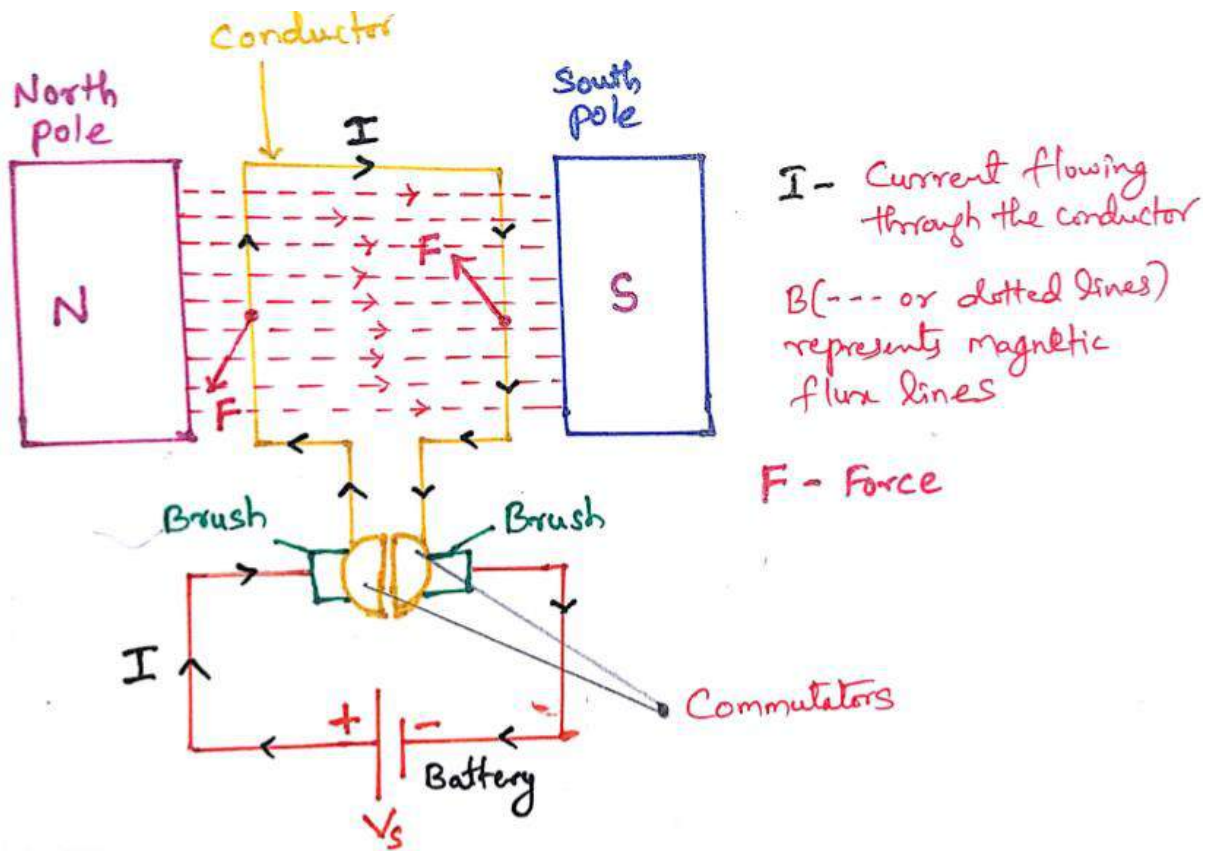 Conductor
North
pole
I
South
pole
N
F
F
S
I - Current flowing
through the conductor
B(--- or dotted lines)
represents magnetic
flux lines
F - Force
Brush
Brush
I
+
-
-
Battery
Vs
Commutators